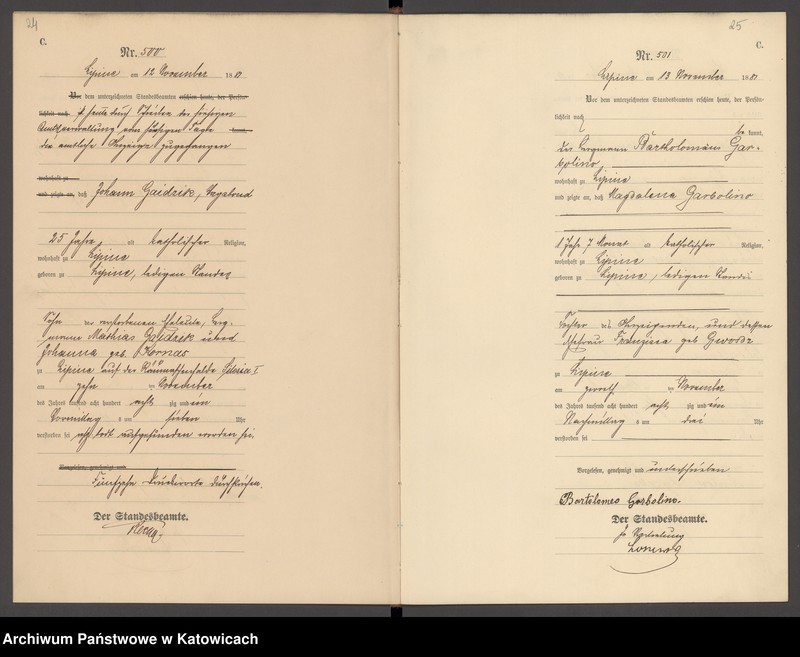 24
C.
Nr. 500
Lipine am 12 November 1881
Vor dem unterzeichneten Standesbeamten erschien heute, der Persön-
lichkeit nach, ist heute durch Schreiben der hiesigen
Amtsverwaltung vom hiesigen Tage kannt,
die amtliche Anzeige zugegangen
wohnhaft zu
und zeigte an, daß Johann Gaidzik, Vagabond
25 Jahre alt katholischer Religion,
wohnhaft zu Lipine
geboren zu Lipine, ledigen Standes
Sohn der verstorbenen Eheleute, Berg-
Mathias Gaidzik und
Johanna geb. Bornas
zu Lipine auf der Silesia I
am zehn ten November
des Jahres tausend acht hundert acht zig und ein
Vormittag s um sieben Uhr
verstorben sei todt aufgefunden worden sei.
Vorgelesen, genehmigt und
Fünfzehn Druckworte durchstrichen.
Der Standesbeamte.
25
C.
Nr. 501
Lipine am 13 November 1881
Vor dem unterzeichneten Standesbeamten erschien heute, der Persön-
lichkeit nach
be kannt,
der Bergmann Bartholomäus Gar-
bolino,
wohnhaft zu Lipine
und zeigte an, daß Magdalena Garbolino
1 Jahr 7 Monat alt katholischer Religion,
wohnhaft zu Lipine
geboren zu Lipine, ledigen Standes
Tochter des Anzeigenden, und dessen
Ehefrau Franziska geb.
zu Lipine
am zwölf ten November
des Jahres tausend acht hundert acht zig und ein
Nachmittag s um drei Uhr
verstorben sei
Vorgelesen, genehmigt und unterschrieben
Bartolomeo Garbolino.
Der Standesbeamte.
In Vertretung
Archiwum Państwowe w Katowicach